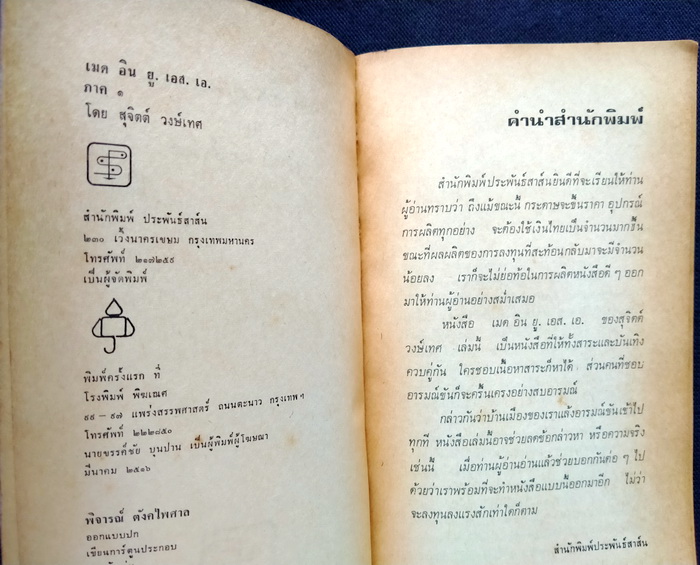 เมด อิน ยู. เอส. เอ.
ภาค ๑
โดย สุจิตต์ วงษ์เทศ
สำนักพิมพ์ ประพันธ์สาส์น
๒๓๐ เวิ้งนาครเขษม กรุงเทพมหานคร
โทรศัพท์ ๒๑๗๒๕๙
เป็นผู้จัดพิมพ์
พิมพ์ครั้งแรก ที่
โรงพิมพ์ พิฆเณศ
๙๙ – ๙๗ แพร่งสรรพศาสตร์ ถนนตะนาว กรุงเทพ ฯ
โทรศัพท์ ๒๒๒๘๕๐
นายขรรค์ชัย บุนปาน เป็นผู้พิมพ์ผู้โฆษณา
มีนาคม ๒๕๑๖
พิจารณ์ ตังคไพศาล
ออกแบบปก
เขียนการ์ตูนประกอบ
คำนำสำนักพิมพ์
สำนักพิมพ์ประพันธ์สาส์นยินดีที่จะเรียนให้ท่าน
ผู้อ่านทราบว่า ถึงแม้ขณะนี้ กระดาษจะขึ้นราคา อุปกรณ์
การผลิตทุกอย่าง จะต้องใช้เงินไทยเป็นจำนวนมากขึ้น
ขณะที่ผลผลิตของการลงทุนที่สะท้อนกลับมาจะมีจำนวน
น้อยลง เราก็จะไม่ย่อท้อในการผลิตหนังสือดี ๆ ออก
มาให้ท่านผู้อ่านอย่างสม่ำเสมอ
หนังสือ เมด อิน ยู. เอส. เอ. ของสุจิตต์
วงษ์เทศ เล่มนี้ เป็นหนังสือที่ให้ทั้งสาระและบันเทิง
ควบคู่กัน ใครชอบเนื้อหาสาระก็หาได้ ส่วนคนที่ชอบ
อารมณ์ขันก็จะครื้นเครงอย่างสบอารมณ์
กล่าวกันว่าบ้านเมืองของเราแล้งอารมณ์ขันเข้าไป
ทุกที หนังสือเล่มนี้อาจช่วยลดข้อกล่าวหา หรือความจริง
เช่นนี้ เมื่อท่านผู้อ่านอ่านแล้วช่วยบอกกันต่อ ๆ ไป
ด้วยว่าเราพร้อมที่จะทำหนังสือแบบนี้ออกมาอีก ไม่ว่า
จะลงทุนลงแรงสักเท่าใดก็ตาม
สำนักพิมพ์ประพันธ์สาส์น